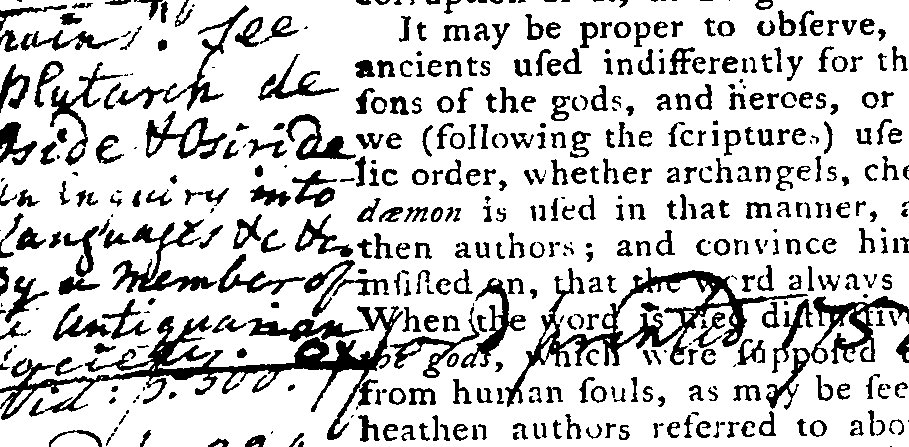 See
Plutarch de
Iside & Osiride
An inquiry into
Languages &c &c.
By a member of
Antiquarian
Society. Oxford printed, 175
Vid: p. 300.
It may be proper to obſerve,
ancients uſed indifferently for th
ſons of the gods, and heroes, or
we (following the ſcriptures) uſe
lic order, whether archangels, che
dæmon is uſed in that manner, a
then authors; and convince him
inſiſted on, that the word always
When the word is uſed diſtinctiv
the gods, which were ſuppoſed t
from human ſouls, as may be ſee
heathen authors referred to abo